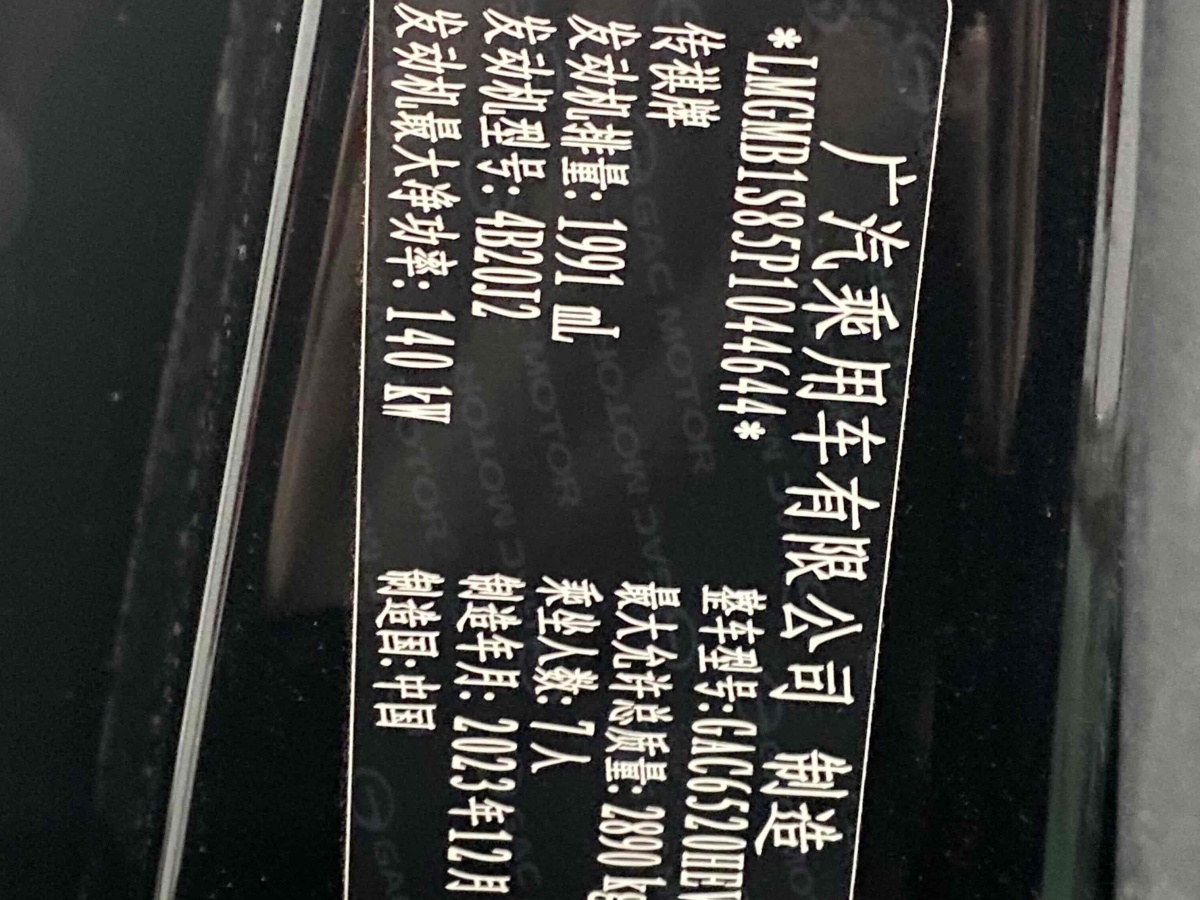 广汽乘用车有限公司 制造
*LMGMB1S85P1044644*
传祺牌 整车型号:GAC6520HEV
发动机排量: 1991 mL 最大允许总质量: 2890 kg
发动机型号: 4B20J2 乘坐人数: 7人
发动机最大净功率: 140 kW 制造年月: 2023年12月
制造国:中国
GAC MOTOR